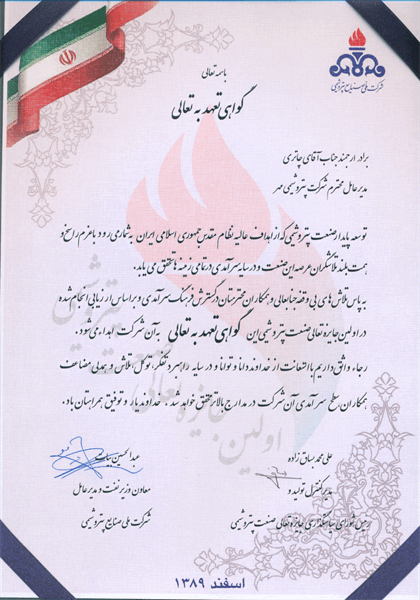 شرکت ملی صنایع پتروشیمی
باسمه تعالی
گواهی تعهد به تعالی
برادر ارجمند جناب آقای چاتری
مدیر عامل محترم شرکت پتروشیمی مهر
توسعه پایدار صنعت پتروشیمی که از اهداف عالیه نظام مقدس جمهوری اسلامی ایران به شمار می رود با عزم راسخ و
همت بلند تلاشگران عرصه این صنعت و در سایه سرآمدی در تمامی زمینه ها تحقق می یابد.
به پاس تلاش های بی وقفه جنابعالی و همکاران محترمتان در گسترش فرهنگ سرآمدی و براساس ارزیابی انجام شده
در اولین جایزه تعالی صنعت پتروشیمی این گواهی تعهد به تعالی به آن شرکت اهداء می شود.
رجاء واثق داریم با استعانت از خداوند دانا و توانا و در سایه راهبرد تفکر، توکل، تلاش و همدلی مضاعف
همکاران سطح سرآمدی آن شرکت در مدارج بالاتر تحقق خواهد شد. خداوند یار و توفیق همراهتان باد.
علی محمد بساق زاده
مدیر کنترل تولید و
رئیس شورای سیاستگذاری جایزه تعالی صنعت پتروشیمی
عبدالحسین بیات
معاون وزیر نفت و مدیر عامل
شرکت ملی صنایع پتروشیمی
اسفند ۱۳۸۹